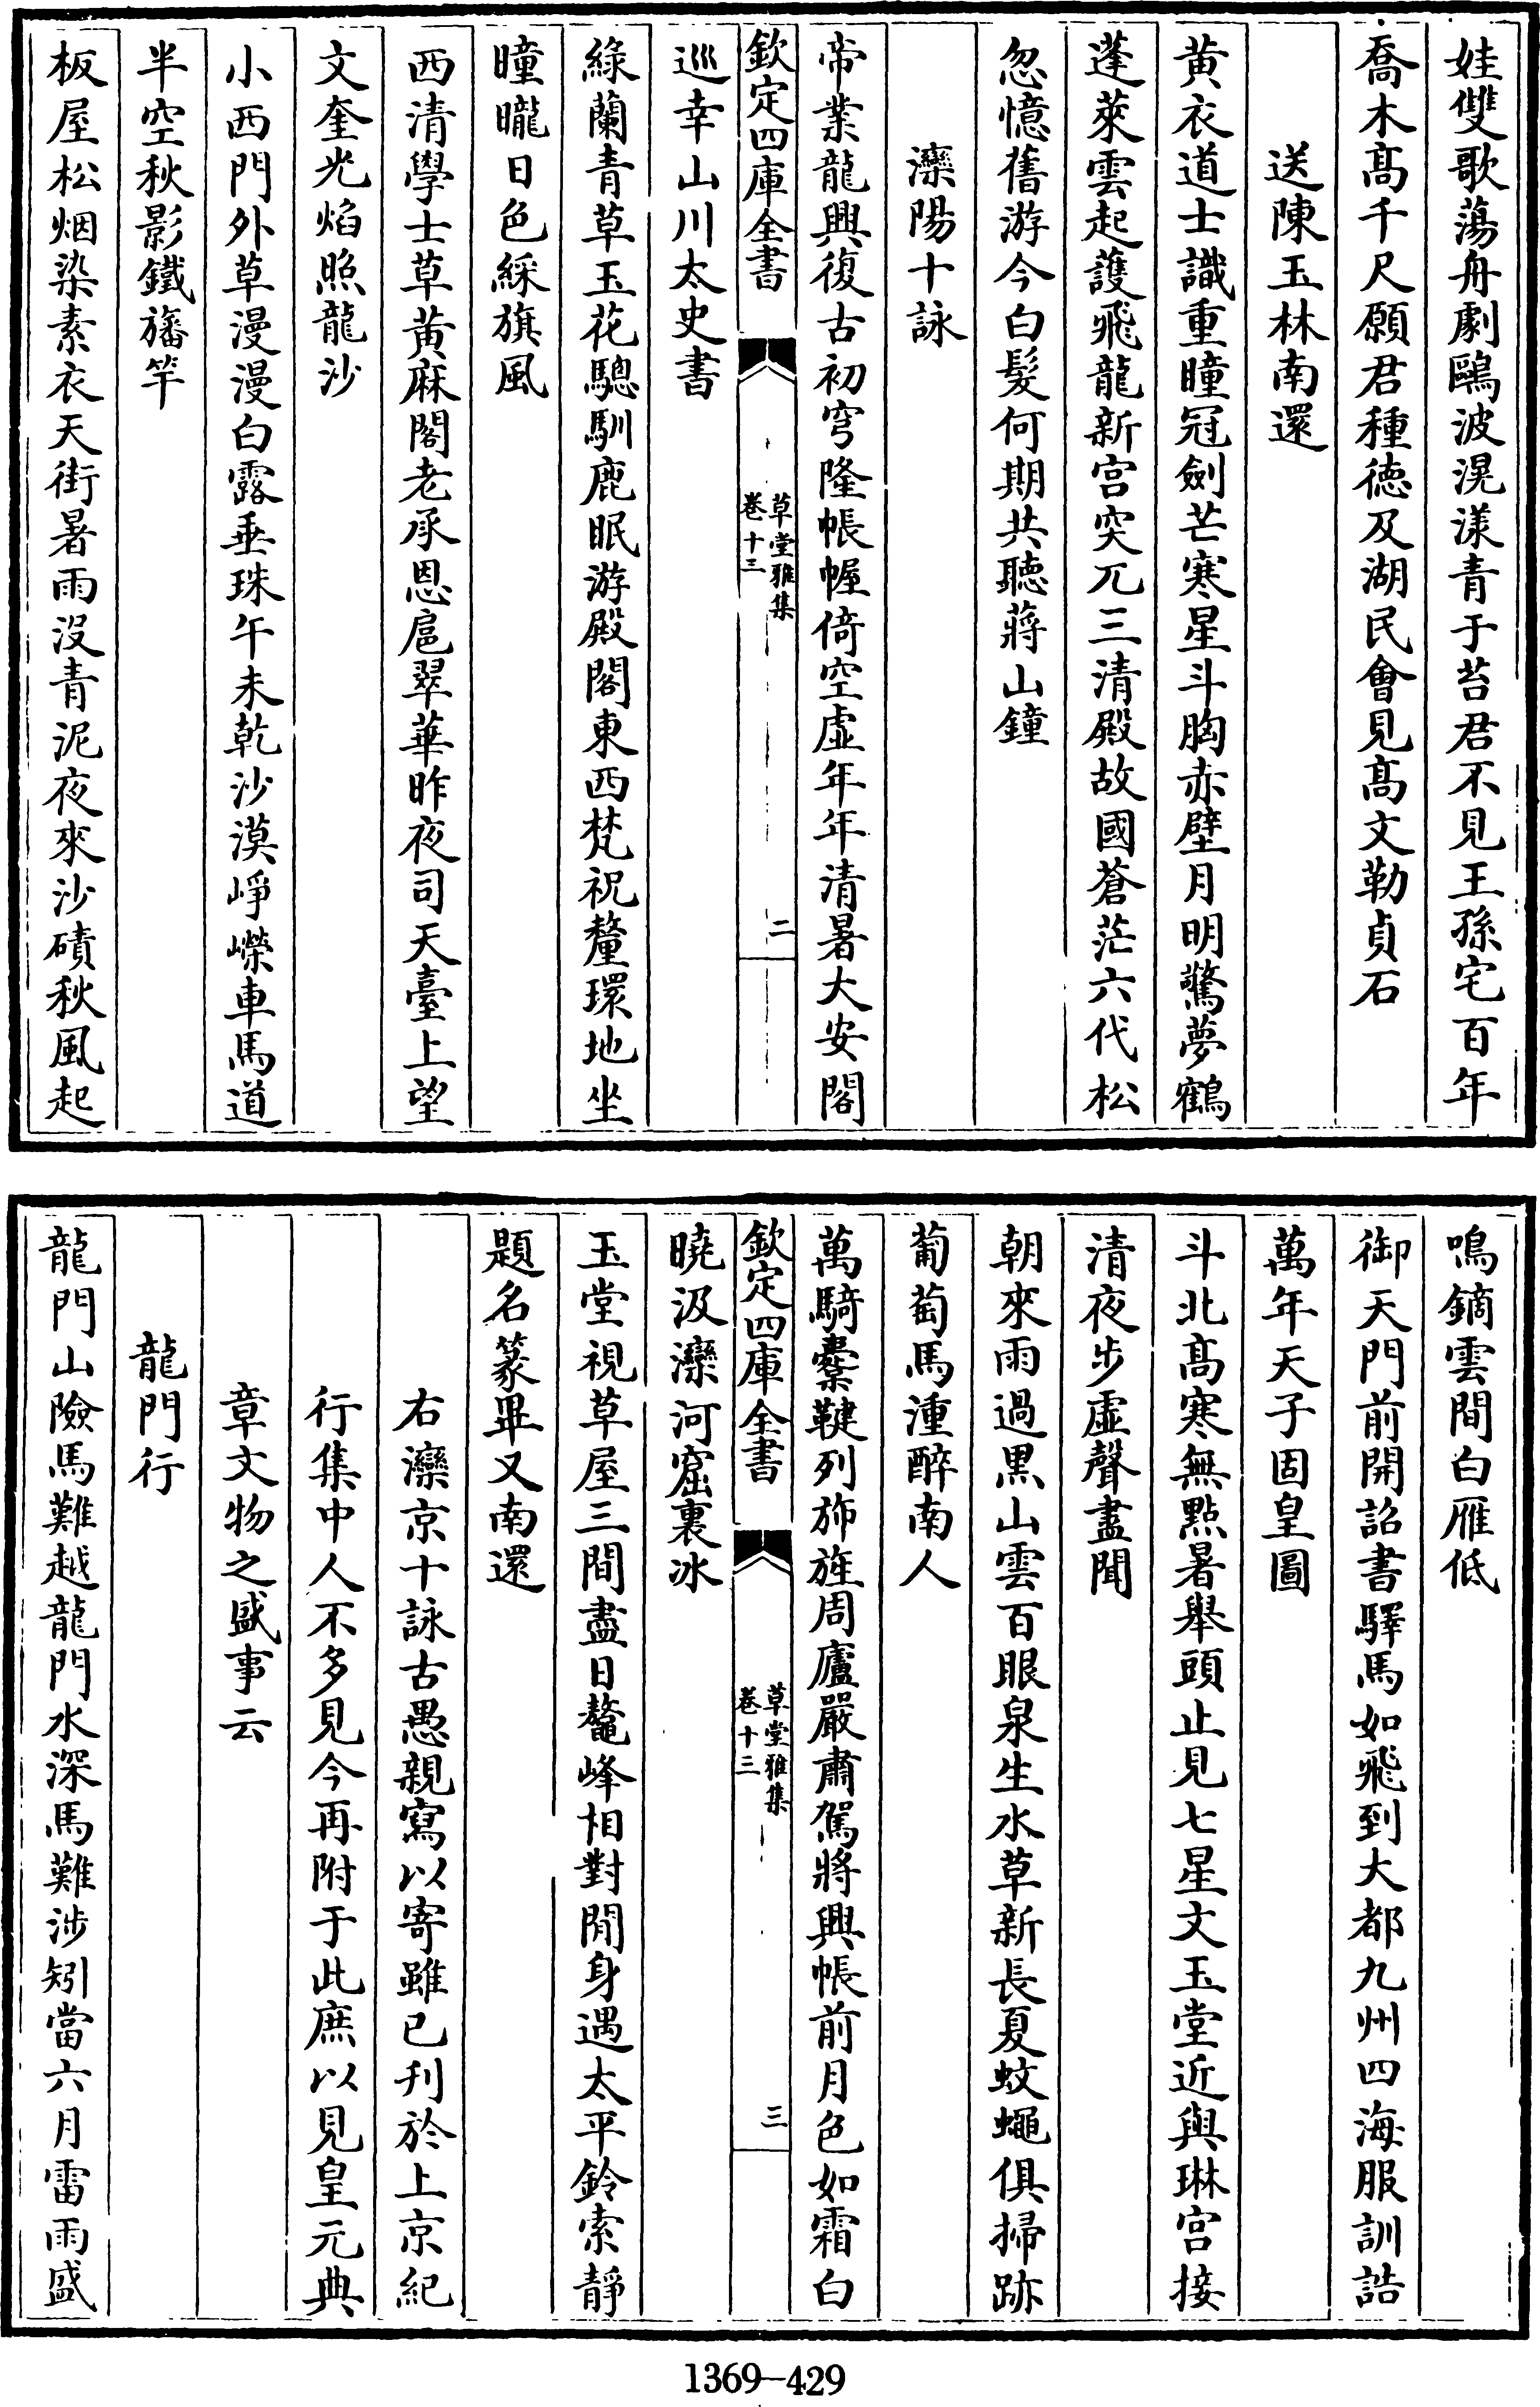 娃雙歌蕩舟劇鷗波滉漾青于苔君不見王孫宅百年
喬木髙千尺願君種徳及湖民會見髙文勒貞石
送陳玉林南還
黄衣道士識重瞳冠劍芒寒星斗胸赤壁月明驚夢鶴
蓬萊雲起䕶飛龍新宫突兀三清殿故國蒼茫六代松
忽憶舊游今白髮何期共聽蔣山鐘
灤陽十詠
帝業龍興復古初穹隆帳幄倚空虚年年清暑大安閣
欽定四庫全書
草堂雅集
卷十三
二
巡幸山川太史書
綠蘭青草玉花驄馴鹿眠游殿閣東西梵祝釐環地坐
曈曨日色綵旗風
西清學士草黄麻閣老承恩扈翠華昨夜司天臺上望
文奎光焰照龍沙
小西門外草漫漫白露垂珠午未乾沙漠崢嶸車馬道
半空秋影鐵旛竿
板屋松烟染素衣天街暑雨沒青泥夜來沙磧秋風起
鳴鏑雲間白雁低
御天門前開詔書驛馬如飛到大都九州四海服訓誥
萬年天子固皇圖
斗北髙寒無點暑舉頭止見七星文玉堂近與琳宫接
清夜步虚聲盡聞
朝來雨過黒山雲百眼泉生水草新長夏蚊蠅俱掃跡
葡萄馬湩醉南人
萬騎櫜鞬列斾旌周廬嚴肅駕將興帳前月色如霜白
欽定四庫全書
草堂雅集
卷十三
三
曉汲灤河窟裏冰
玉堂視草屋三間盡日鼇峰相對閒身遇太平鈴索靜
題名篆畢又南還
右灤京十詠古愚親寫以寄雖已刋於上京紀
行集中人不多見今再附于此庶以見皇元典
章文物之盛事云
龍門行
龍門山險馬難越龍門水深馬難涉矧當六月雷雨盛
1369—429